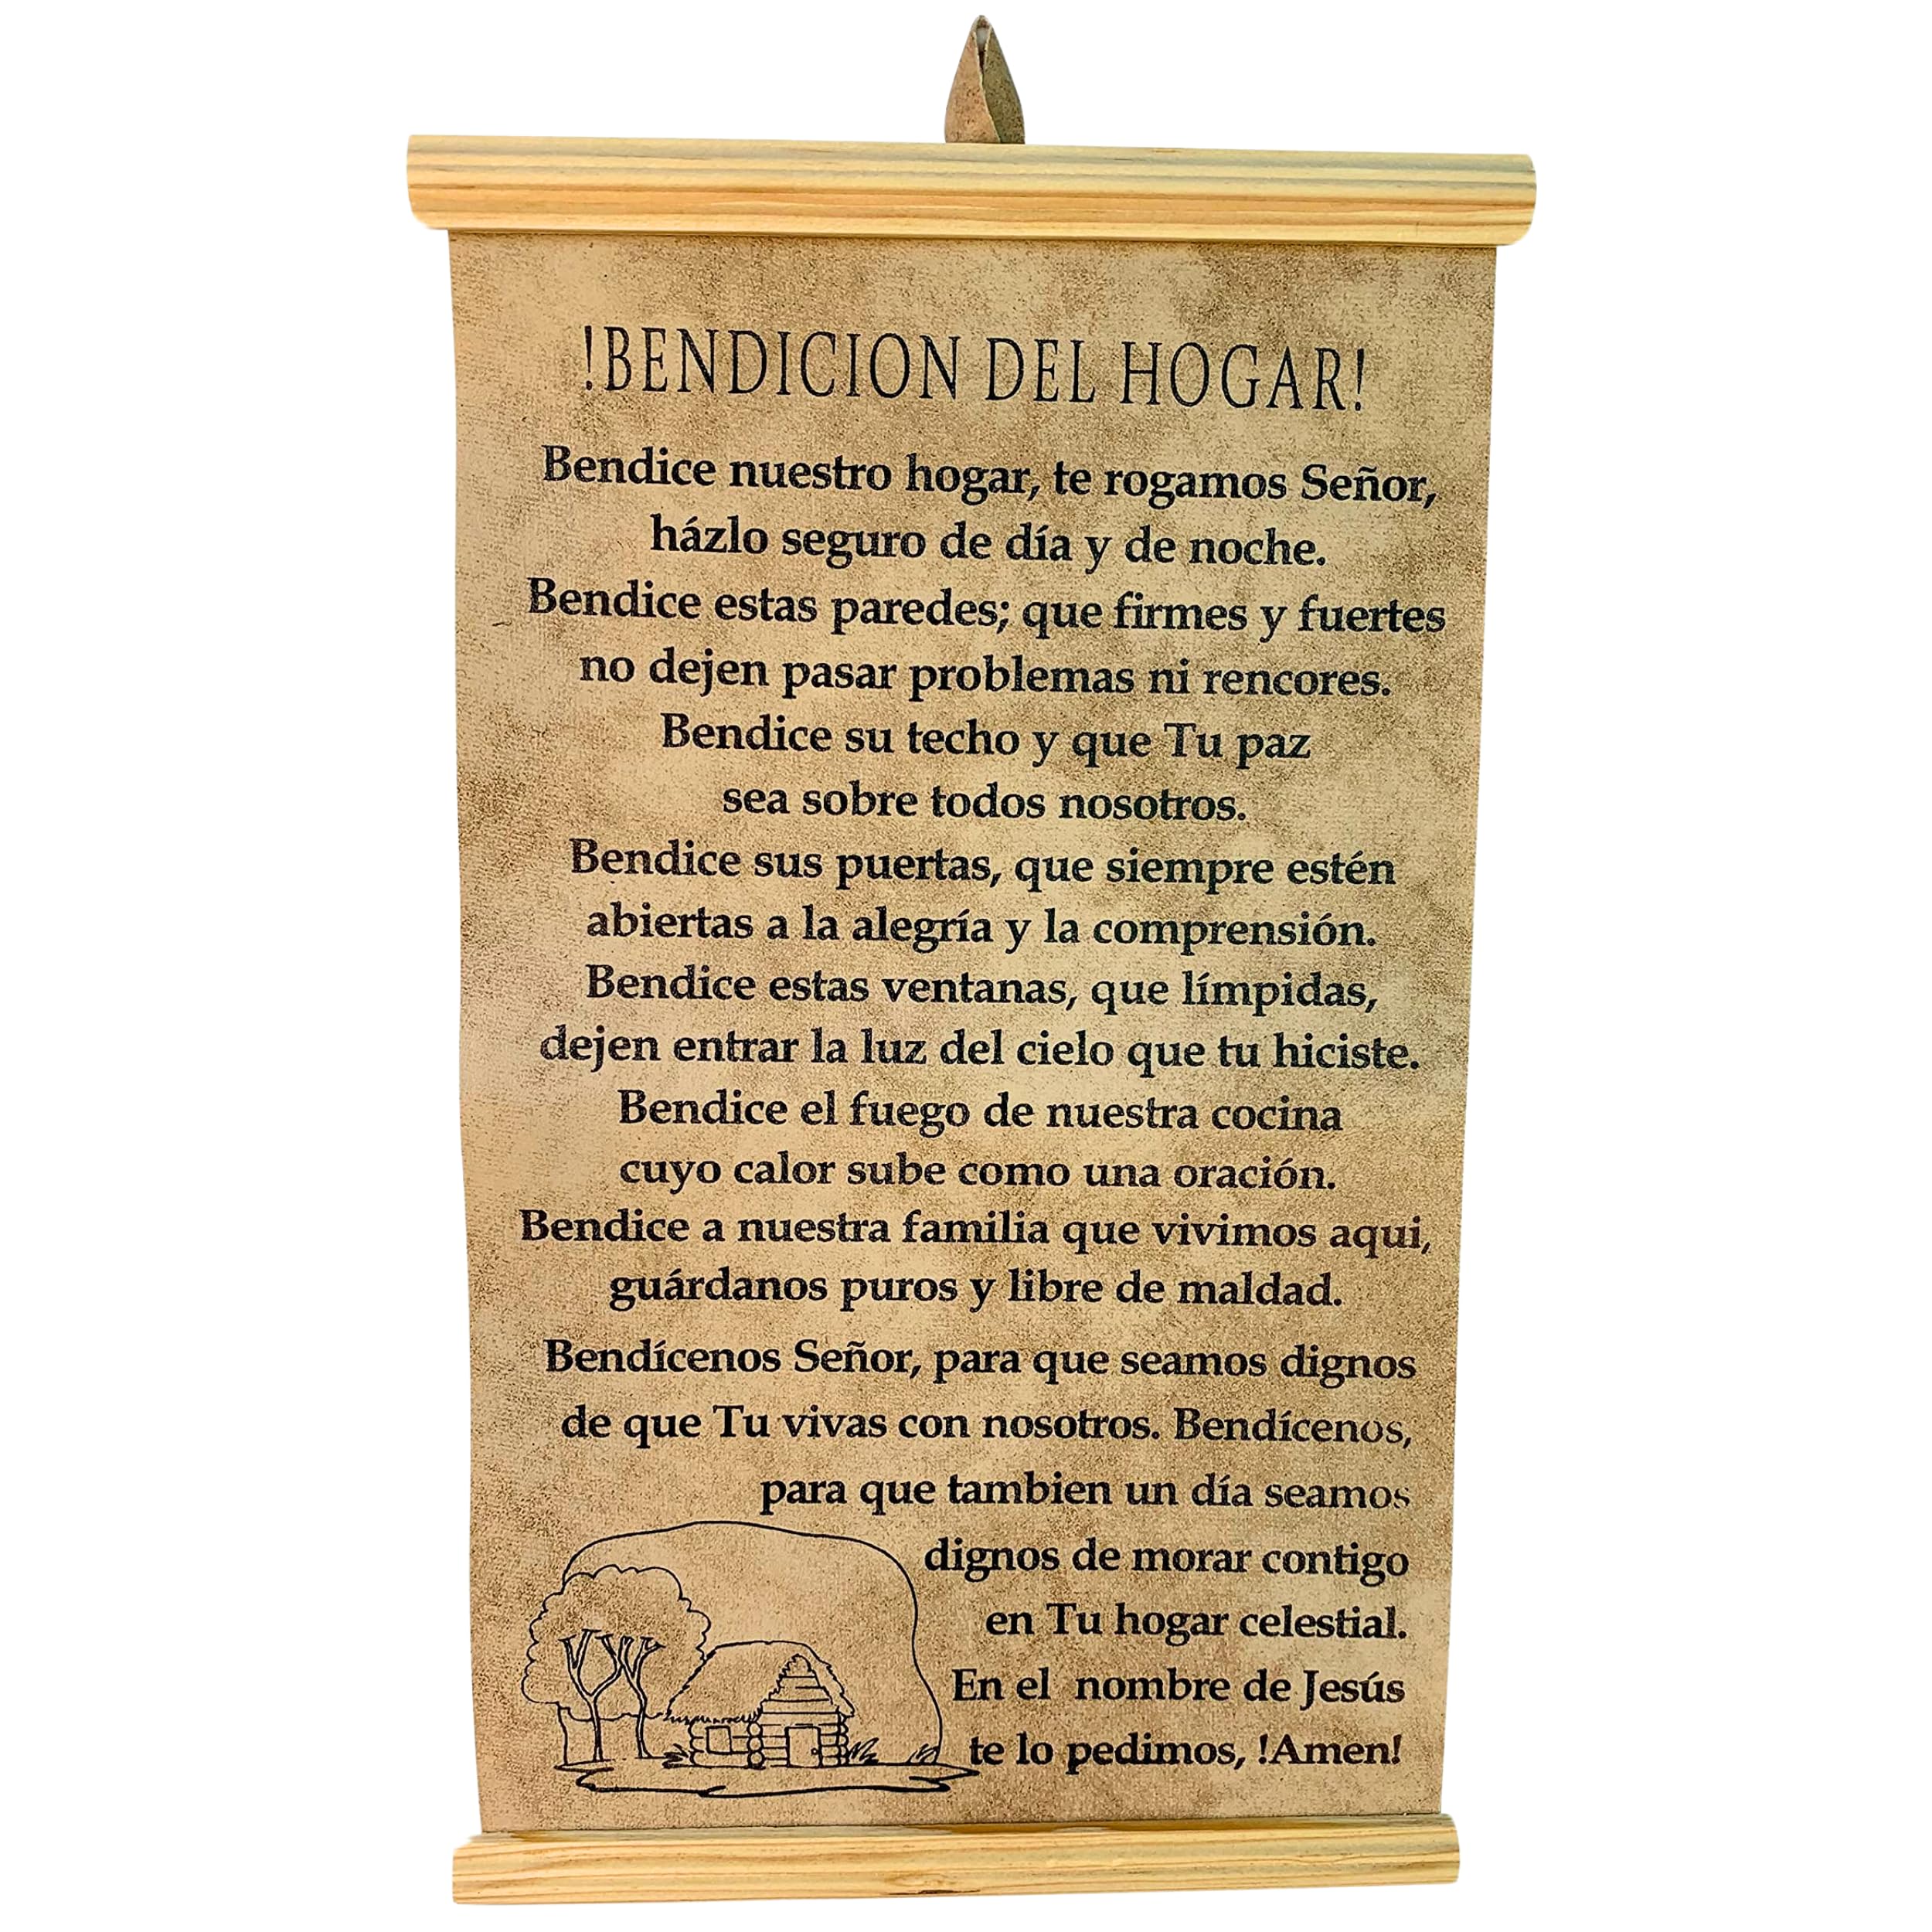 !BENDICION DEL HOGAR!
Bendice nuestro hogar, te rogamos Señor,
házlo seguro de día y de noche.
Bendice estas paredes; que firmes y fuertes
no dejen pasar problemas ni rencores.
Bendice su techo y que Tu paz
sea sobre todos nosotros.
Bendice sus puertas, que siempre estén
abiertas a la alegría y la comprensión.
Bendice estas ventanas, que límpidas,
dejen entrar la luz del cielo que tu hiciste.
Bendice el fuego de nuestra cocina
cuyo calor sube como una oración.
Bendice a nuestra familia que vivimos aqui,
guárdanos puros y libre de maldad.
Bendícenos Señor, para que seamos dignos
de que Tu vivas con nosotros. Bendícenos,
para que tambien un día seamos
dignos de morar contigo
en Tu hogar celestial.
En el nombre de Jesús
te lo pedimos, !Amen!